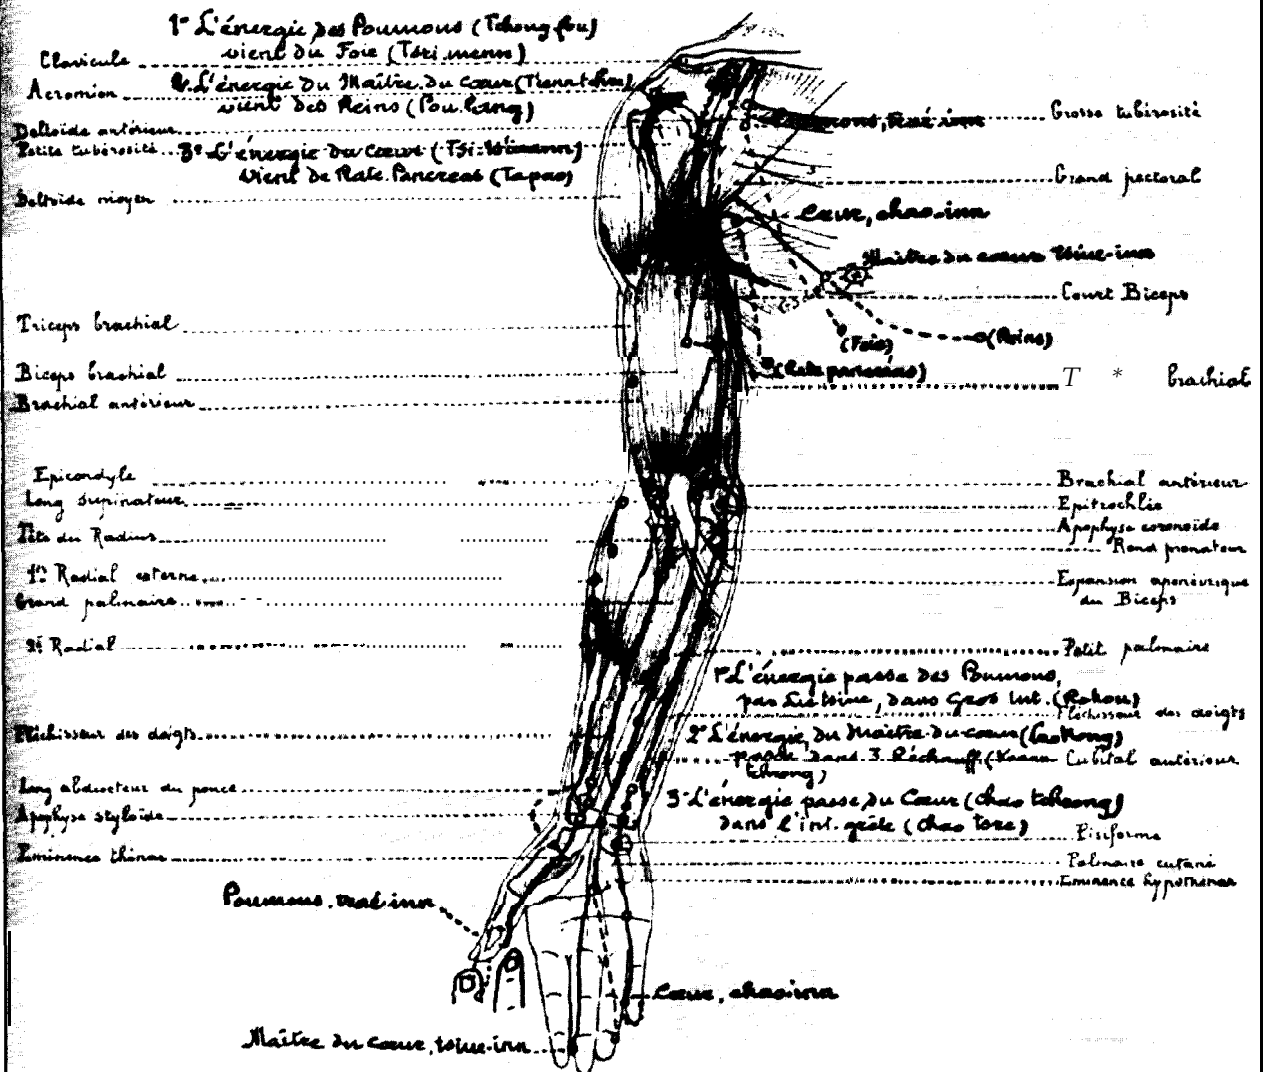 1º L'énergie des Poumons (Tchong-fou)
vient du Foie (Tsri.menn)
Clavicule
2. L'énergie du Maître du cœur (Tienn-tchre)
Acromion
vient des Reins (Fou.lang)
Deltoïde antérieur
Petite tubérosité
3º L'énergie du Cœur (Tsi-
vient de Rate.Pancréas (Tapao)
Deltoïde moyen
Triceps brachial
Biceps brachial
Brachial antérieur
Epicondyle
Long supinateur
Tête du Radius
1er Radial externe
Grand palmaire
2e Radial
Fléchisseur des doigts
Long abducteur du pouce
Apophyse styloïde
Eminence thénar
Poumons, traé-inn
Maître du cœur, tsiue-inn
Grosse tubérosité
Poumons, traé-inn
Grand pectoral
Cœur, chao-inn
Maître du cœur tsiue-inn
Court Biceps
(Foie)
(Reins)
(Rate pancréas)
T * brachial
Brachial antérieur
Epitrochlée
Apophyse coronoïde
Rond pronateur
Expansion aponévrotique
du Biceps
Petit palmaire
1º L'énergie passe des Poumons,
par Lie tsiue, dans Gros Int. (Rokou)
Fléchisseur des doigts
2º L'énergie du Maître du cœur (Laokong)
passe dans 3 Réchauff. (Koann
Cubital antérieur
tchrong)
3º L'énergie passe du Cœur (chao tchrong)
dans l'int. grêle (chao tsre)
Pisiforme
Palmaire cutané
Eminence hypothénar
Cœur, chao-inn